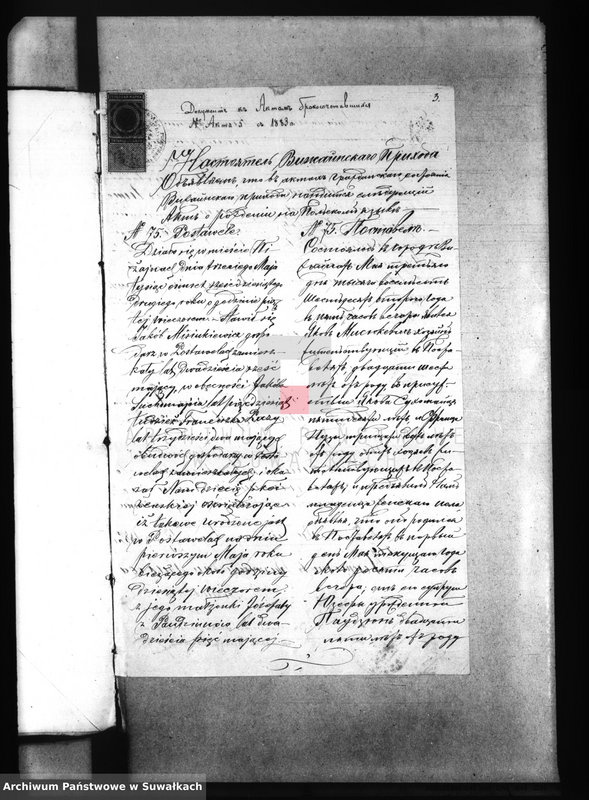 3.
Документъ къ Актамъ Бракосочетавшихся
№ Акта 5 с 1883 о
Настоятель Вижайнскаго Прихода
Объявляетъ, что въ актахъ гражданскаго состоянія
Вижайнскаго прихода находится слѣдующій
Актъ о рожденіи на Польскомъ языкѣ
№ 75. Postawele
Działo się w mieście Wi-
żajnach dnia trzeciego Maja
tysiąc ośmset sześćdziesiątego
drugiego roku o godzinie pią-
tej wieczorem. Stawił się
Jakób Misiukiewicz gospo-
darz w Postawelach zamiesz-
kały lat dwadzieścia sześć
mający, w obecności Jakóba
lat pięćdziesiąt
tudzież Franciszka
lat trzydzieści dwa mającego
obudwóch gospodarzy w Posta-
welach zamieszkałych i oka-
zał Nam dziecię płci
żeńskiej oświadczając
iż takowe urodzone jest
w Postawelach na dniu
pierwszym Maja roku
bieżącego o godzinie
wieczorem
z jego małżonki Józefaty
z lat dwa-
dzieścia pięć mającej
№ 75. Поставеле.
Состоялось въ городѣ Ви-
жайнахъ Мая третьяго
дня тысяча восемьсотъ
шестьдесятъ втораго года
въ пять часовъ вечера. Явился
Яковъ Мисюкевичъ хозяинъ
жительствующій въ Поста-
веляхъ, двадцати шести
лѣтъ отъ роду, въ присут-
ствіи Якова
пятидесяти лѣтъ и Франца
тридцати двухъ лѣтъ
отъ роду обоихъ хозяевъ жи-
тельствующихъ въ Поста-
веляхъ, и предъявилъ Намъ
младенца женскаго пола
объявляя, что оно родилось
въ Поставеляхъ въ первый
день Мая текущаго года
въ часовъ
вечера, отъ его супруги
Юзефаты урожденной
двадцати
пяти лѣтъ отъ роду
Archiwum Państwowe w Suwałkach